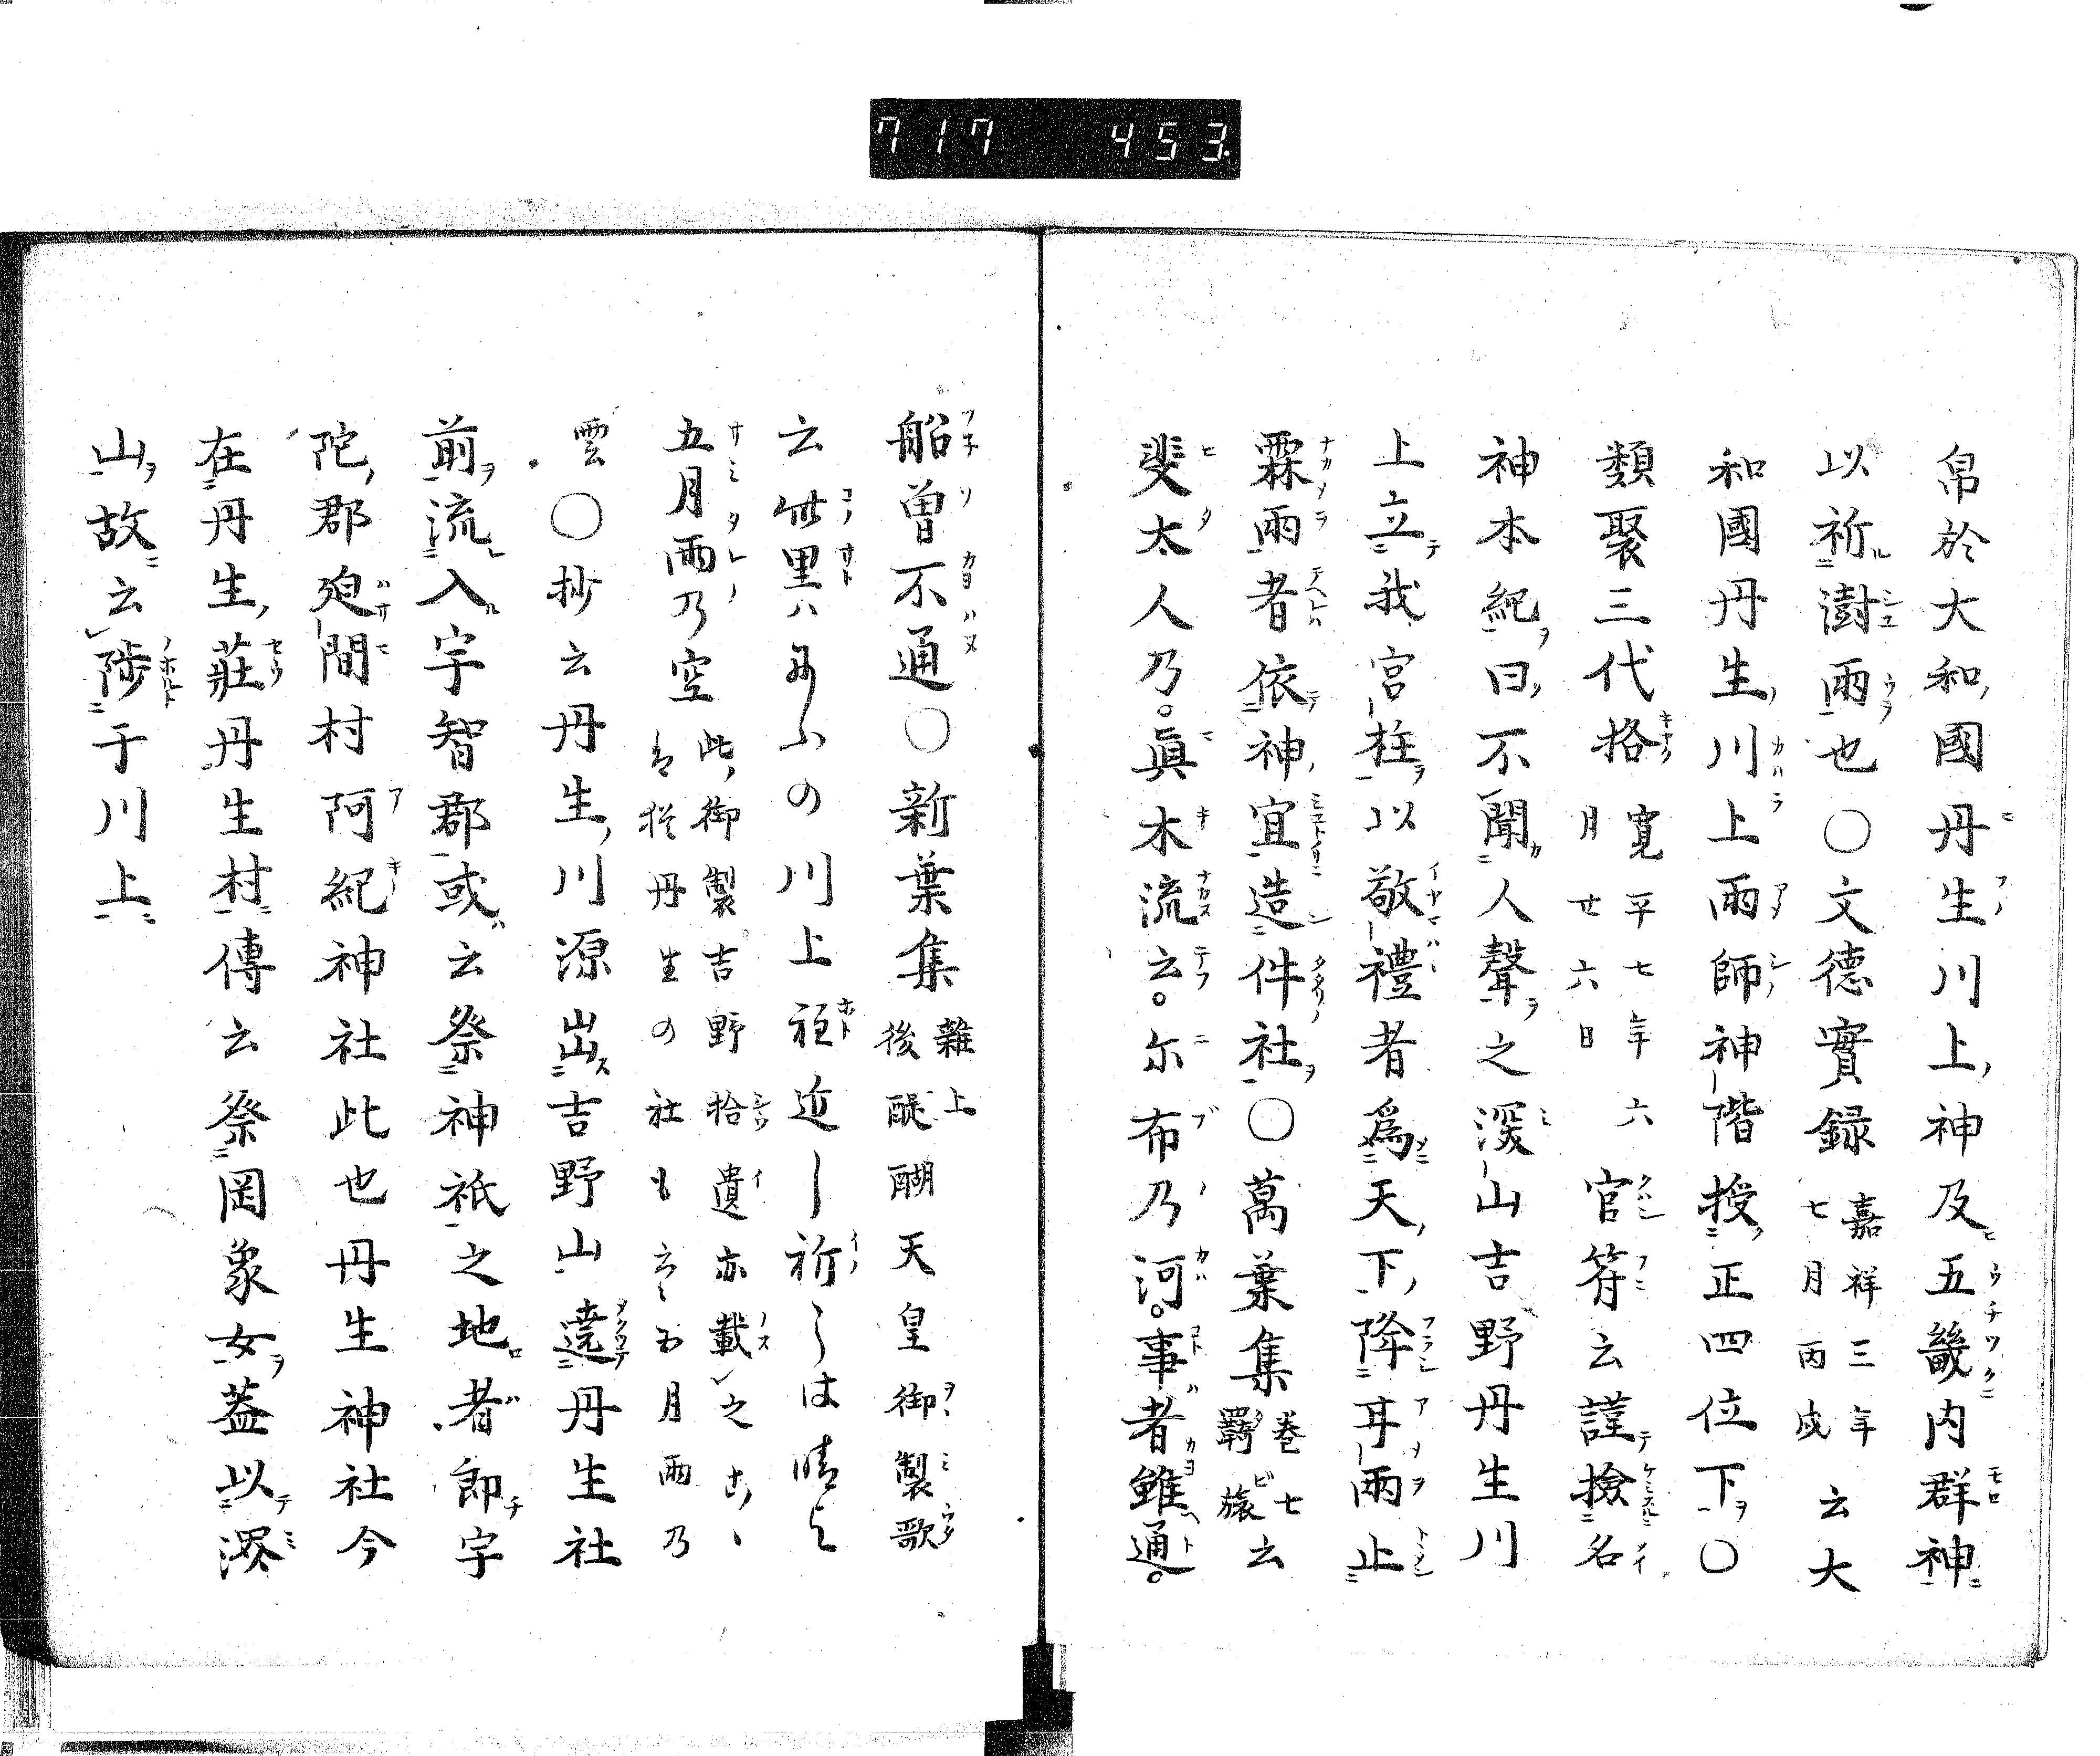 717 453
帛於大和國丹生川上神及五畿内群神
以祈澍雨也〇文德實録嘉祥三年七月丙戌云大
和國丹生川上雨師神階授正四位下〇
類聚三代格寛平七年六月廿六日官符云謹撿名
神本紀曰不聞人聲之深山吉野丹生川
上立我宮柱以敬禮者爲天下降甘雨止
霖雨者依神宜造件社〇萬葉集卷七羇旅云
斐太人乃。眞木流云。尓布乃河。事者雖通。
船曽不通〇新葉集雜上後醍醐天皇御製歌
云此里ハ丹ふの川上程近し祈らは晴よ
五月雨乃空此御製吉野拾遺亦載之
雲〇抄云丹生川源出吉野山遶丹生社
前流入宇智郡或云祭神祇之地者即宇
陀郡迫間村阿紀神社此也丹生神社今
在丹生莊丹生村傳云祭罔象女葢以深
山故云陟于川上